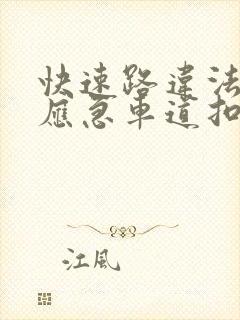 快速路違法
應急車道扣
江風